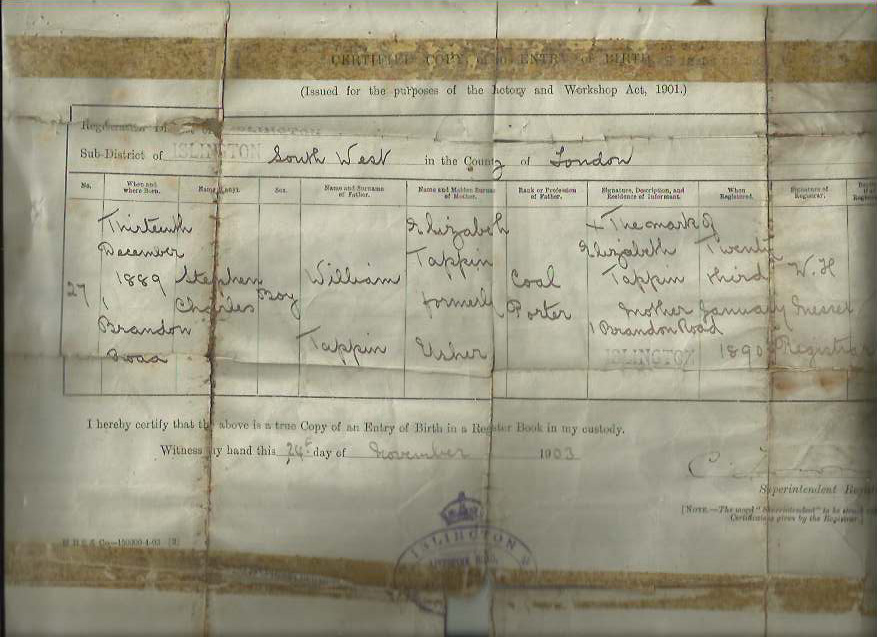 CERTIFIED COPY of an ENTRY OF BIRTH
(Issued for the purposes of the Factory and Workshop Act, 1901.)
Registration District of ISLINGTON
Sub-District of ISLINGTON South West in the County of London
No.
When and where Born.
Name, if any.
Sex.
Name and Surname of Father.
Name and Maiden Surname of Mother.
Rank or Profession of Father.
Signature, Description, and Residence of Informant.
When Registered.
Signature of Registrar.
27
Thirteenth
December
1889
1
Brandon
Road
Stephen
Charles
Boy
William
Tappin
Elizabeth
Tappin
formerly
Usher
Coal
Porter
X The mark of
Elizabeth
Tappin
Mother
1 Brandon Road
ISLINGTON
Twenty
third
January
1890
W. H
Registrar
I hereby certify that the above is a true Copy of an Entry of Birth in a Register Book in my custody.
Witness my hand this 24th day of November 1903
Superintendent Regis
[NOTE.—The word "Superintendent" to be
Certificates given by the Registrar.
ISLINGTON